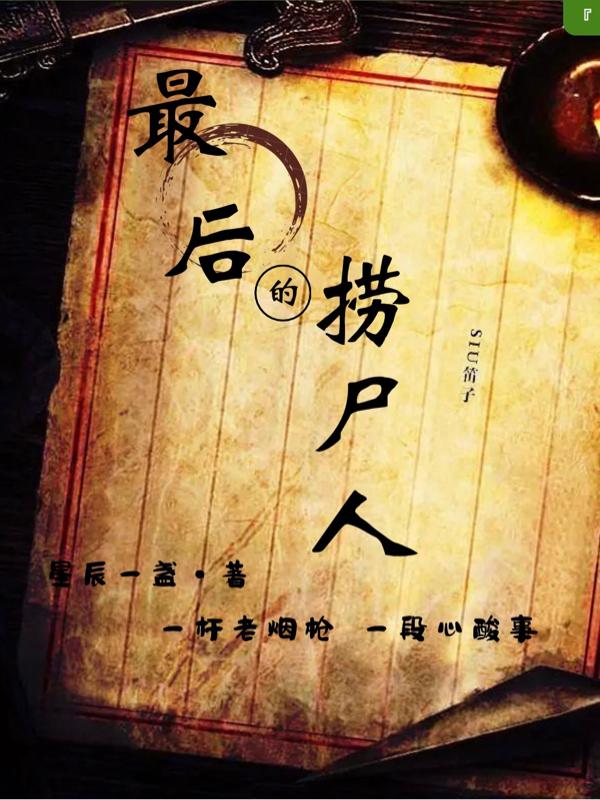 最后的捞尸人
SIU笛子
星辰一盏·著
一杆老烟枪 一段心酸事
『